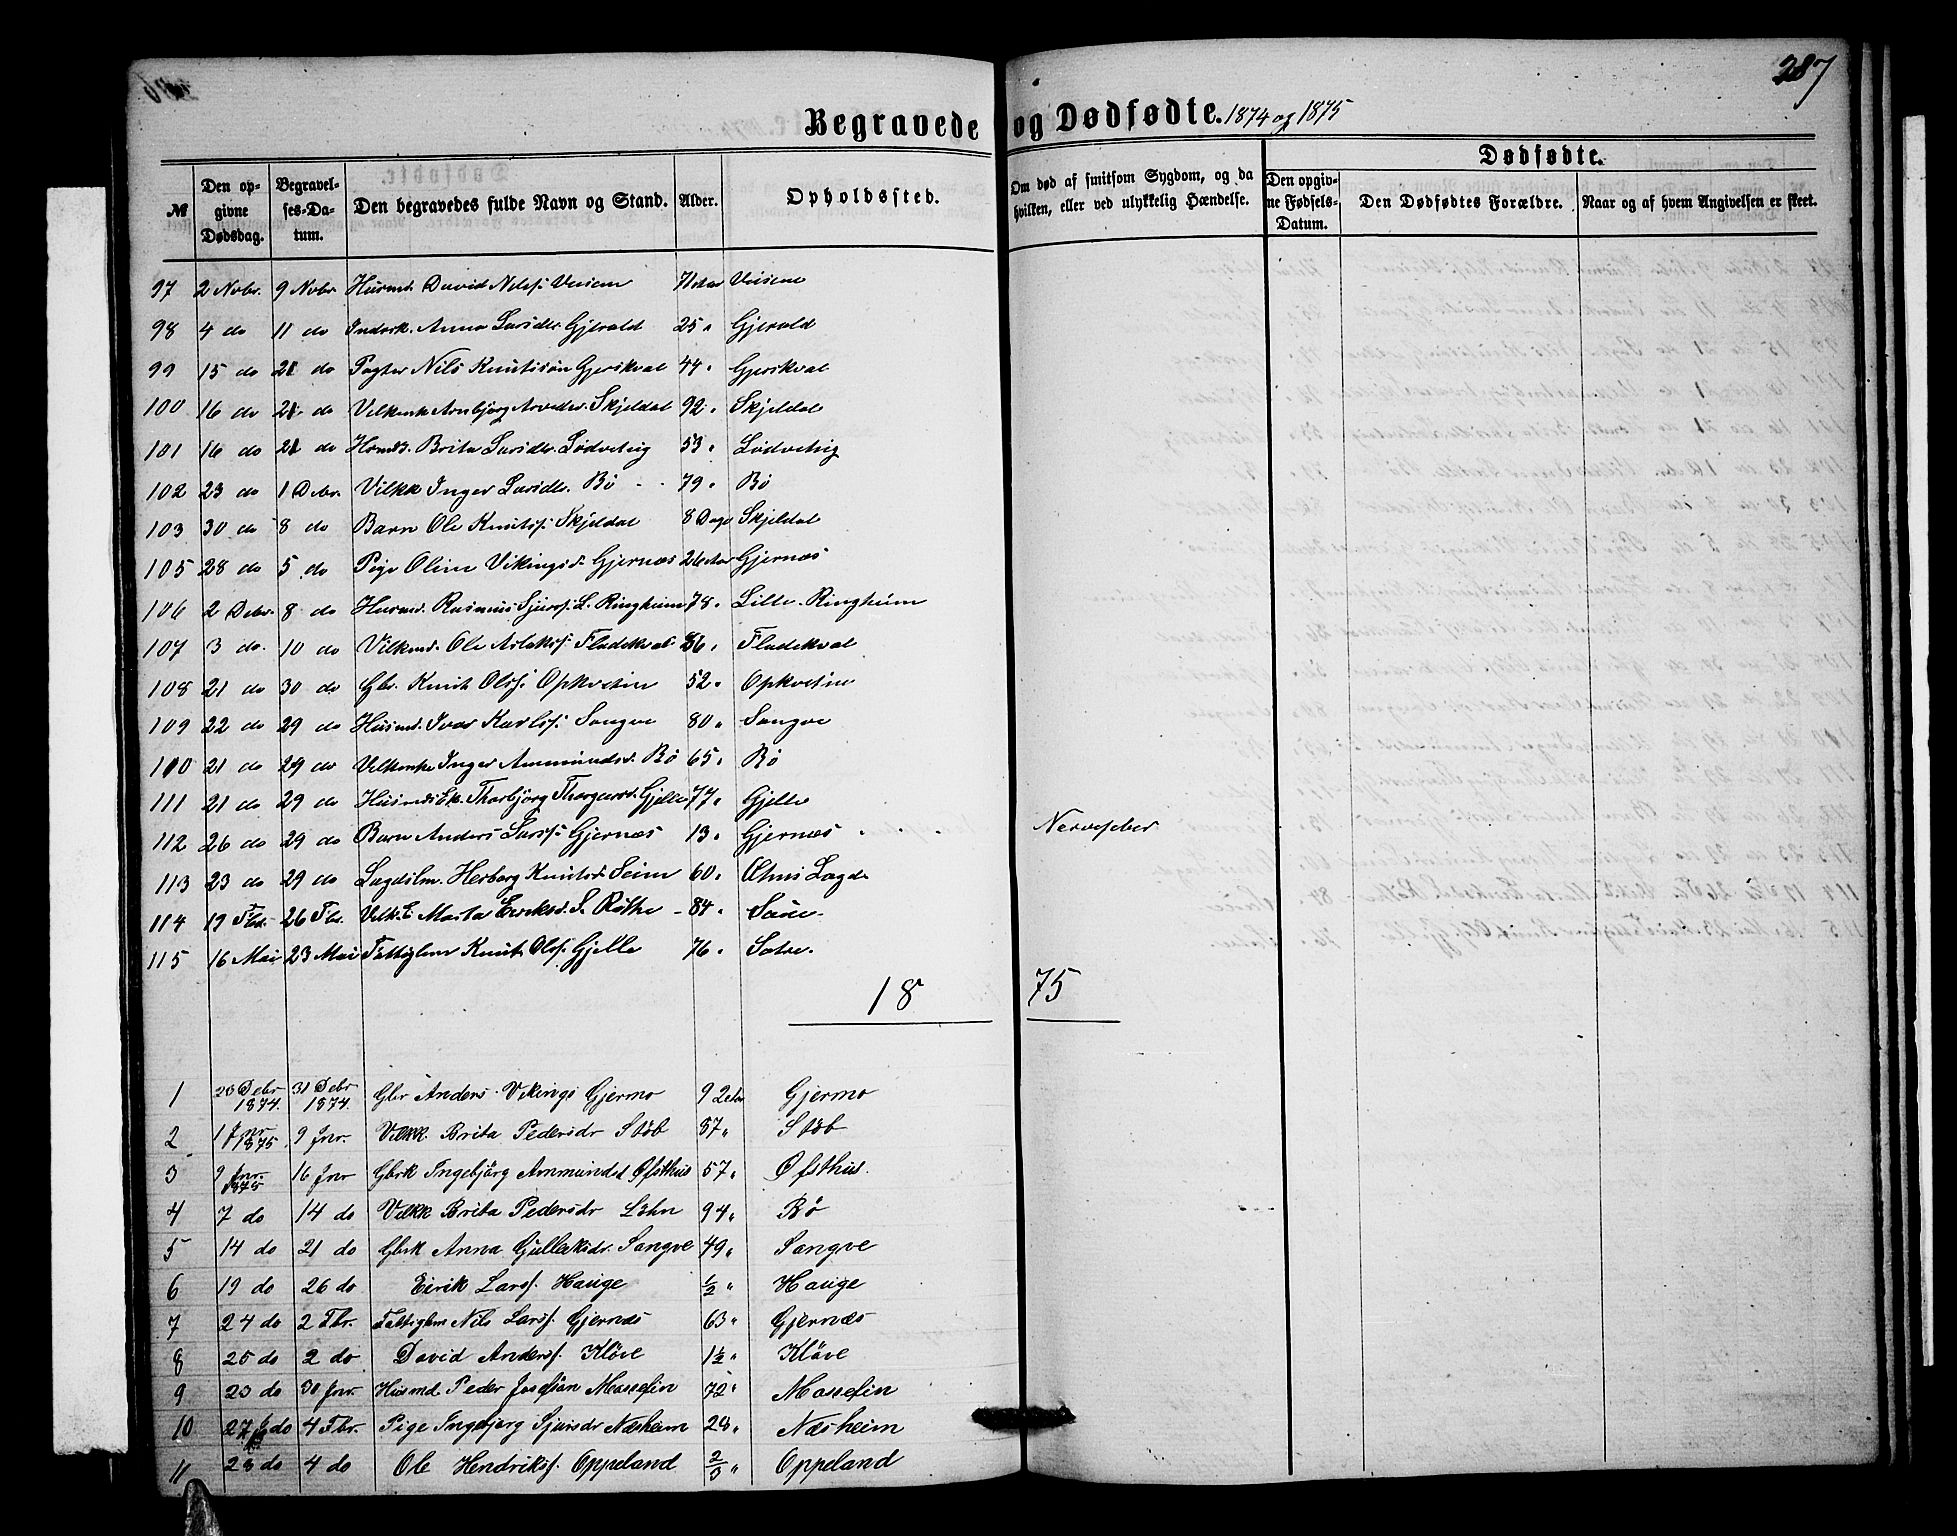 287
Begravede og Dødfødte. 1874 og 1875
Dødfødte.
№ | Den opgivne Dødsdag. | Begravelses-Datum. | Den begravedes fulde Navn og Stand. | Alder. | Opholdssted. | Om død af smitsom Sygdom, og da hvilken, eller ved ulykkelig Hændelse. | Den opgivne Fødsels-Datum. | Den Dødfødtes Forældre. | Naar og af hvem Angivelsen er skeet.
97 2 Nvbr. 9 Nvbr Husmd. David Nilss.
98 4 do 11 do Inderk. Anna Larsdr Gjerald 25 " Gjerald
99 15 do 21 do Pagter Nils Knutsson Gjerskval 44 " Gjerskval
100 16 do 21 do Vilkenke Arnbjörg Skjeldal 92 " Skjeldal
101 16 do 21 do Brita Larsdr. Lödvetvig 53 " Lödvetvig
102 23 do 1 Debr. Vilkk Inger Larsdr. Bö 79 " Bö
103 30 do 8 do Barn Ole Knutss. Skjeldal 8 Dage Skjeldal
105 28 do 5 do Pige Oline Vikingsd. Gjernæs 26 Aar Gjernæs
106 2 Debr. 8 do Husmd. Rasmus Sjurss. L. Ringheim 78 " Lille Ringheim
107 3 do. 10 do Vilkmd. Ole Aslakss. Fladekval 86 " Fladekval
108 21 do 30 do Gbr. Knut Olss. Opkvetin 52 " Opkvetin
109 22 do 29 do Husmd. Ivar Karlss. Sangve 80 " Sangve
110 21 do 29 do Vilkenke Inger Ammundsd. Bö 65 " Bö
111 21 do 29 do Thorbjörg Gjelle 77 " Gjelle
112 26 do 29 do Barn Anders Larss. Gjernæs 13 " Gjernæs Nervefeber
113 23 do 29 do Lagdslm. Herborg Knutsd. Seim 60 " Lagde
114 19 Fbr. 26 Fbr. Marta Eeriksd. S. Röthe 84 "
115 16 Mai 23 Mai Fattiglem Knut Olss. Gjelle 76 "
1875
1 Debr 1874. 31 Debr 1874. Gbr Anders Vikings Gjermo 92 Aar Gjermo
2 1 Jnr 1875. 9 Jnr. Vilkk. Brita Pedersdr Stöb 87 " Stöb
3 9 Jnr. 1875 16 Jnr Gbrk Ingebjörg Ammundsd Øfsthus 57 " Øfsthus.
4 7 do 14 do Vilkk Brita Pedersdr Löhn 94 " Bö
5 14 do 21 do Gbrk Anna Gulleiksdr. Sangve 49 " Sangve
6 19 do 26 do Eirik Larss. Hauge ½ " Hauge
7 24 do 2 Fbr. Fattiglm Nils Larss. Gjernæs 63 " Gjernæs
8 25 do 2 do David Anderss. Klöve 1½ " Klöve
9 23 do 30 Jnr. Husmd Peder Josefson Mossefin 72 " Mossefin
10 27 do 4 Fbr. Pige Ingebjørg Sjursdr Næsheim 28 " Næsheim
11 28 do 4 do Ole Hendrikss. Oppeland 2/3 " Oppeland